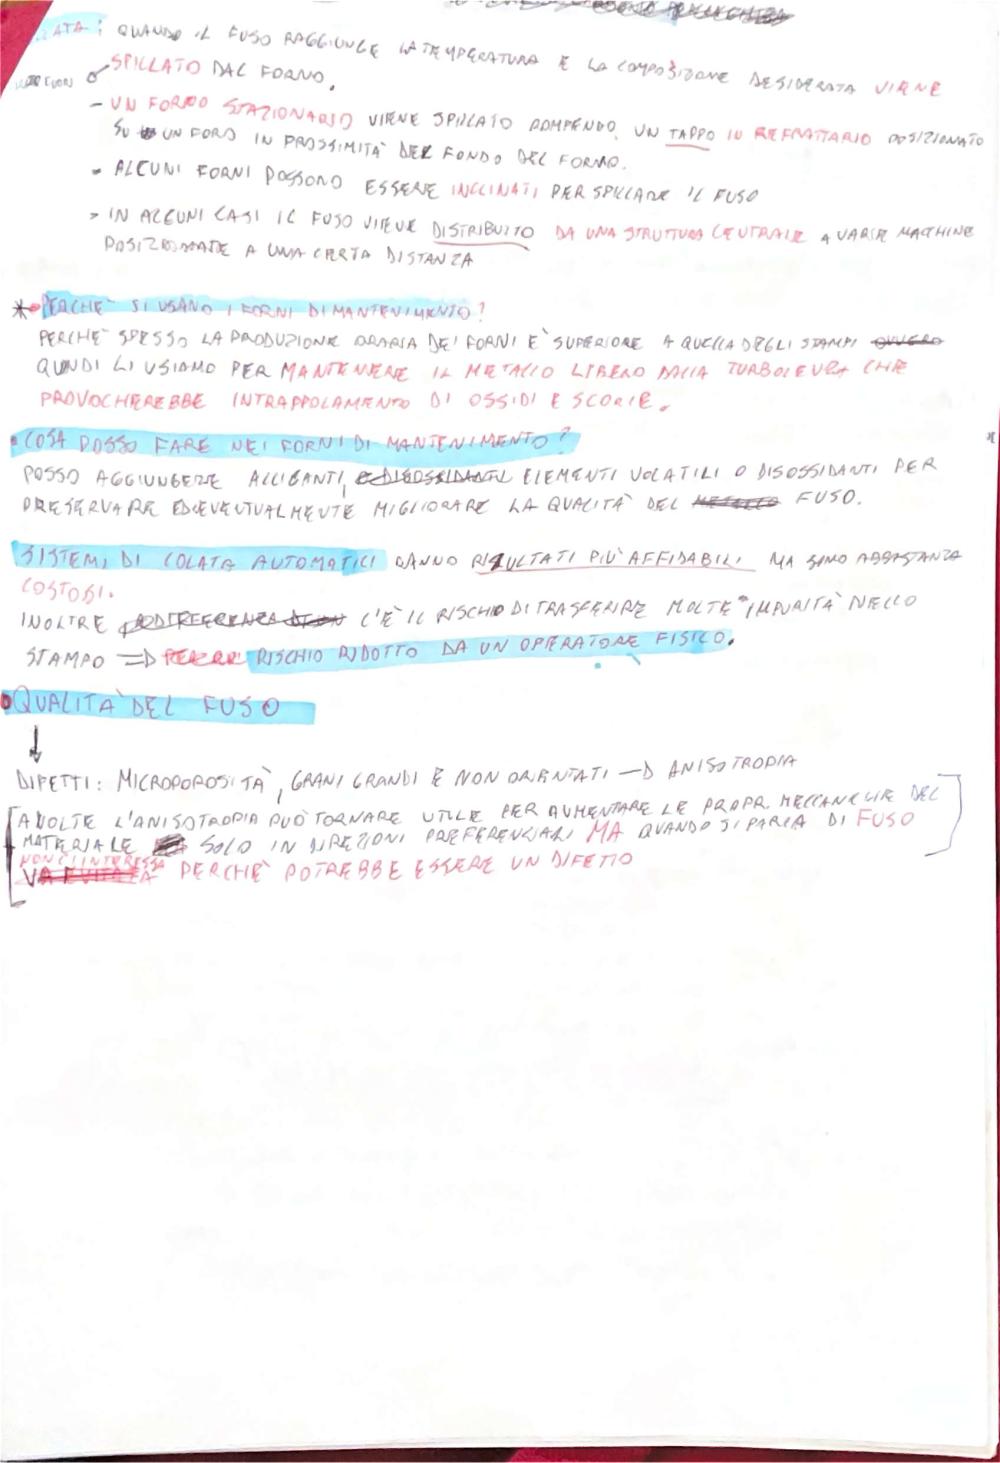 LATA: QUANDO IL FUSO RAGGIUNGE LA TEMPERATURA E LA COMPOSIZIONE DESIDERATA VIENE
SPILLATO DAL FORNO.
- UN FORNO STAZIONARIO VIENE SPILLATO ROMPENDO UN TAPPO IN REFRATTARIO POSIZIONATO
SU UN FORO IN PROSSIMITÀ DEL FONDO DEL FORNO.
- ALCUNI FORNI POSSONO ESSERE INCLINATI PER SPILLARE IL FUSO
- IN ALCUNI CASI IL FUSO VIENE DISTRIBUITO DA UNA STRUTTURA CENTRALE A VARIE MACCHINE
POSIZIONATE A UNA CERTA DISTANZA
* PERCHÈ SI USANO I FORNI DI MANTENIMENTO?
PERCHÈ SPESSO LA PRODUZIONE ORARIA DEI FORNI È SUPERIORE A QUELLA DEGLI STAMPI OVVERO
QUINDI LI USIAMO PER MANTENERE IL METALLO LIBERO DALLA TURBOLENZA CHE
PROVOCHEREBBE INTRAPPOLAMENTO DI OSSIDI E SCORIE.
• COSA POSSO FARE NEI FORNI DI MANTENIMENTO?
POSSO AGGIUNGERE ALLIGANTI, E DISOSSIDANTI ELEMENTI VOLATILI O DISOSSIDANTI PER
PRESERVARE ED EVENTUALMENTE MIGLIORARE LA QUALITÀ DEL METALLO FUSO.
SISTEMI DI COLATA AUTOMATICI DANNO RISULTATI PIÙ AFFIDABILI MA SONO ABBASTANZA
COSTOSI.
INOLTRE C'È IL RISCHIO DI TRASFERIRE MOLTE IMPURITÀ NELLO
STAMPO => RISCHIO RIDOTTO DA UN OPERATORE FISICO.
• QUALITÀ DEL FUSO
↓
DIFETTI: MICROPOROSITÀ, GRANI GRANDI E NON ORIENTATI → ANISOTROPIA
A VOLTE L'ANISOTROPIA PUÒ TORNARE UTILE PER AUMENTARE LE PROPR. MECCANICHE DEL
MATERIALE SOLO IN DIREZIONI PREFERENZIALI MA QUANDO SI PARLA DI FUSO
NON CI INTERESSA
VA EVITATA PERCHÈ POTREBBE ESSERE UN DIFETTO